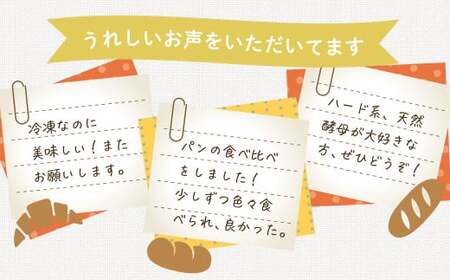 うれしいお声をいただいてます
冷凍なのに
美味しい！また
お願いします。
パンの食べ比べ
をしました！
少しずつ色々食
べられ、良かった。
ハード系、天然
酵母が大好きな
方、ぜひどうぞ！